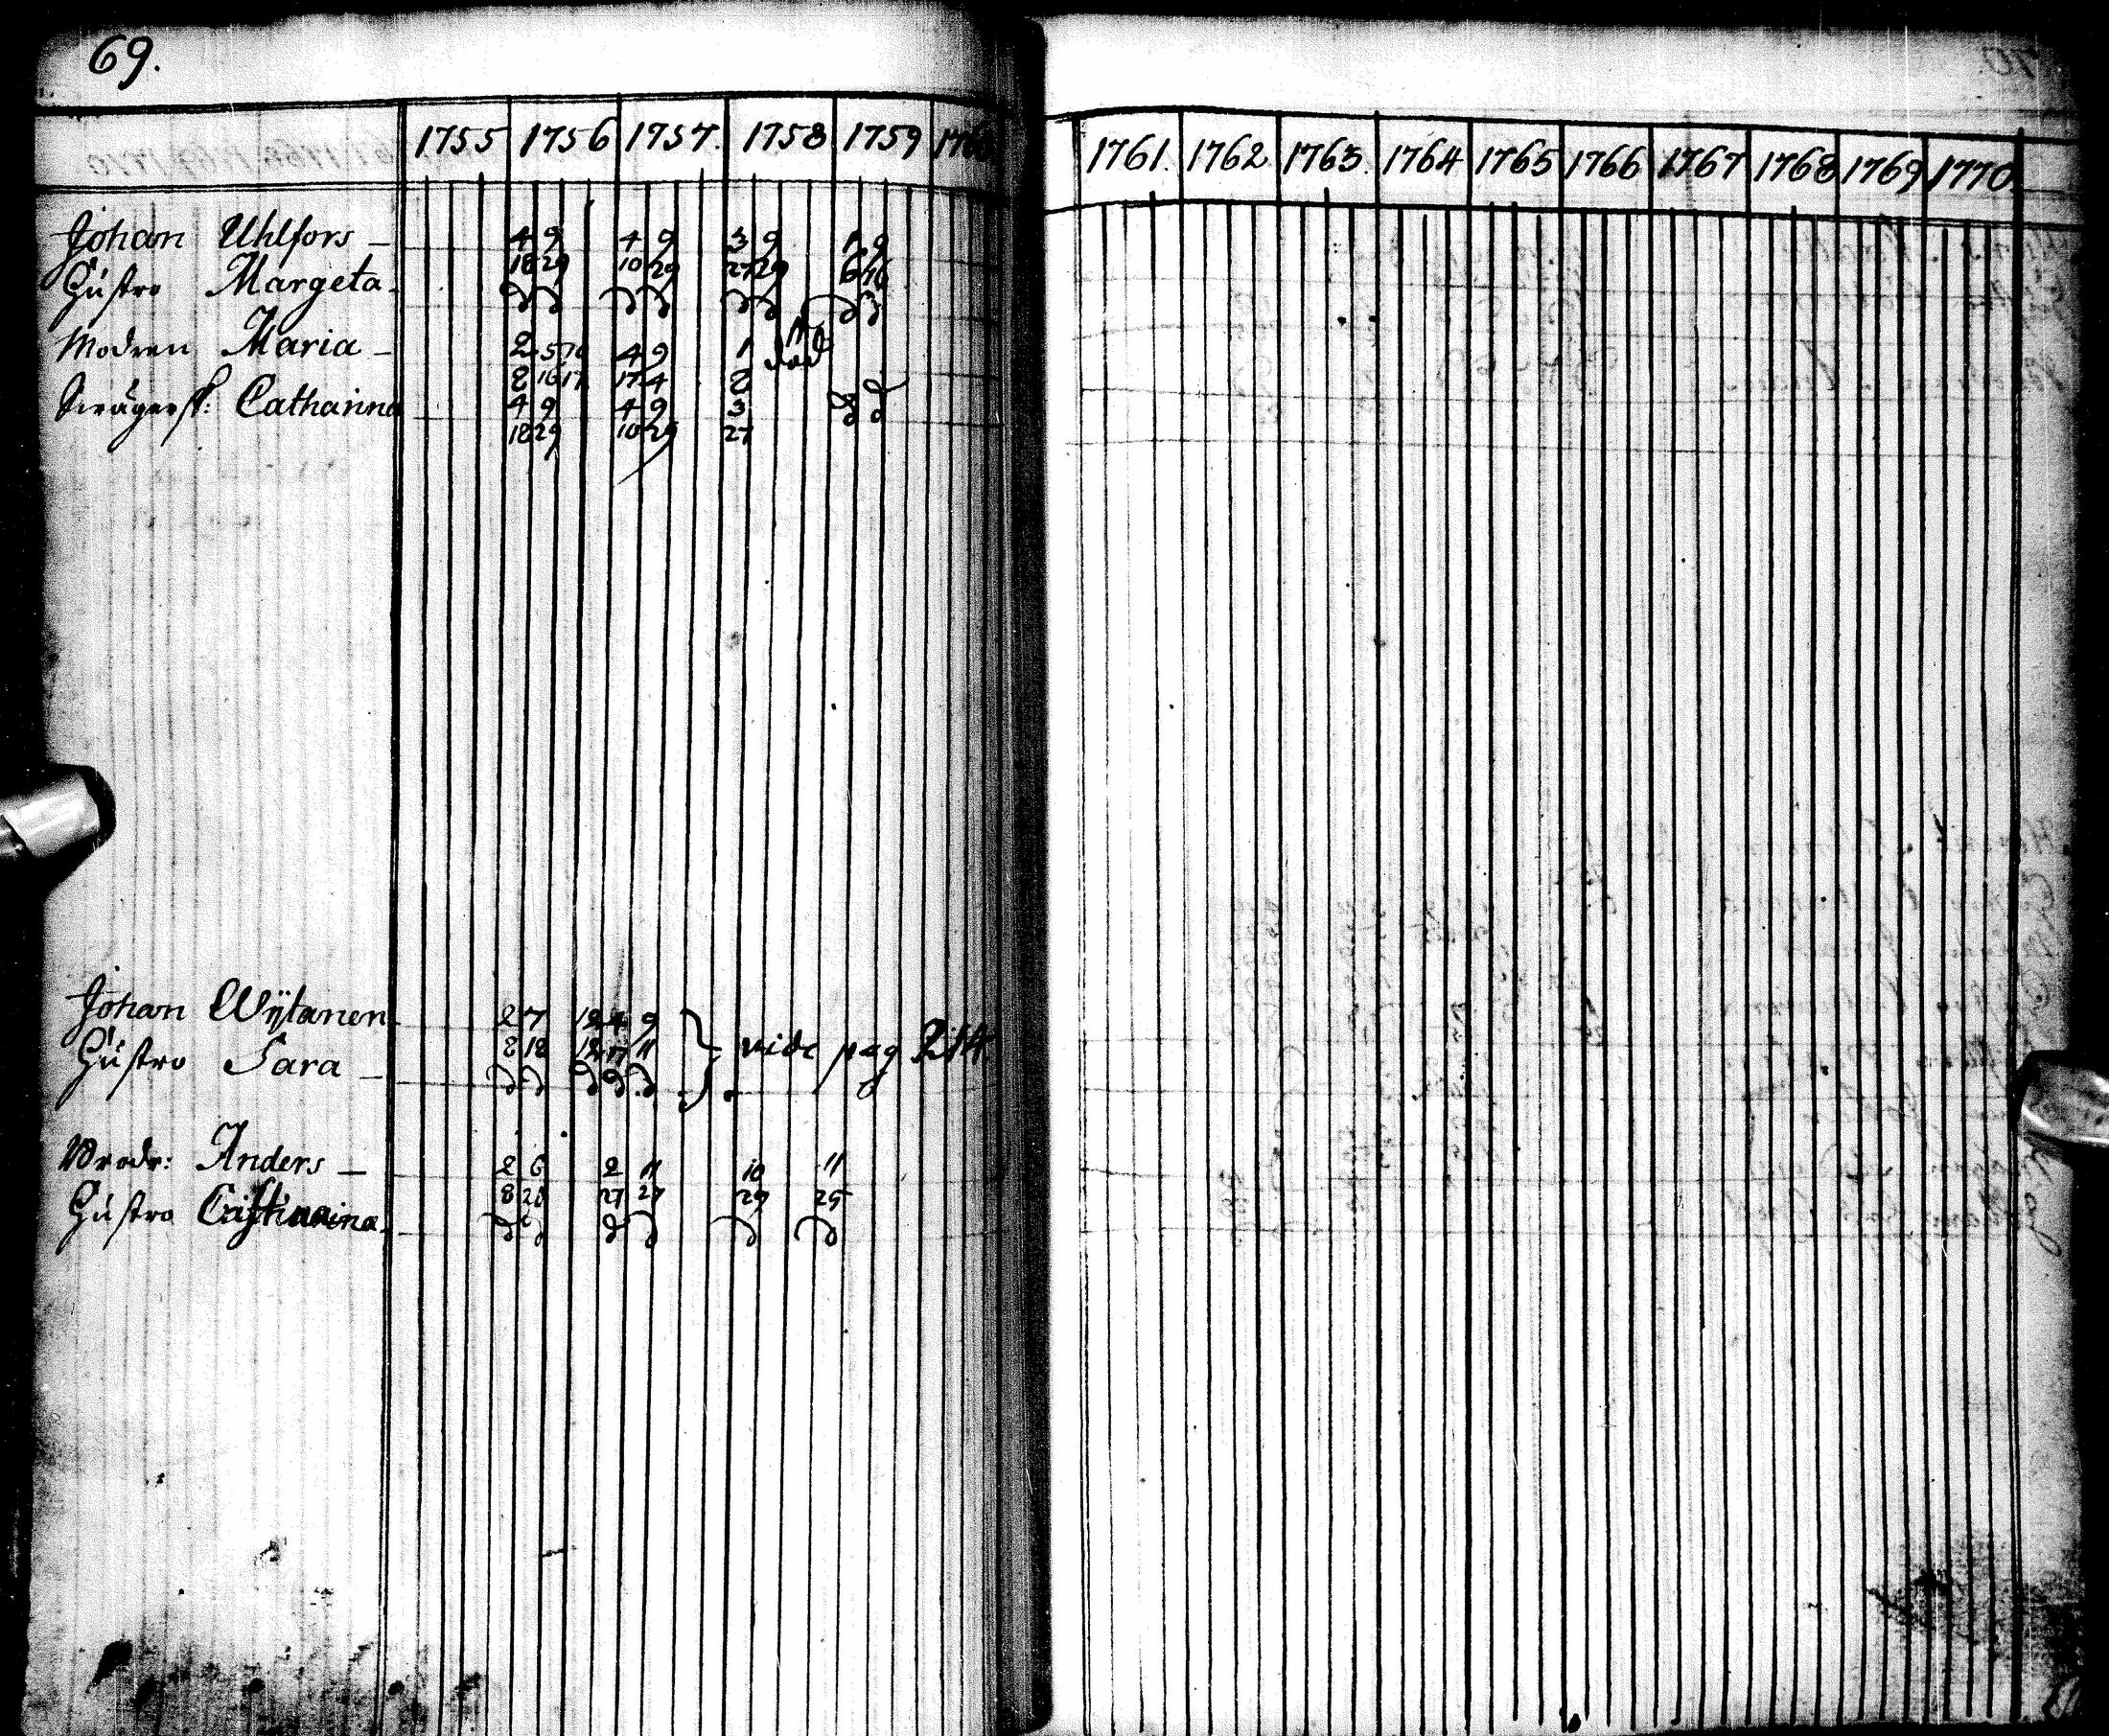 69.
1755 1756 1757. 1758 1759 1760 1761. 1762 1763. 1764 1765 1766 1767 1768 1769 1770
Johan Uhlfors — 4 9 4 9 3 9 1 9
18 29 10 29 27 29
Hustro Margeta.
Modren Maria — 2 5 10 4 9 1 död
8 16 17 17 4 2
Swägersk: Catharina 4 9 4 9 3
18 29 10 29 27
Johan Wÿtanen 2 7 12 4 9
8 18 18 17 11 vide pag 214
Hustro Sara —
Brodr: Anders — 2 6 2 11 10 11
8 20 27 27 29 25
Hustro